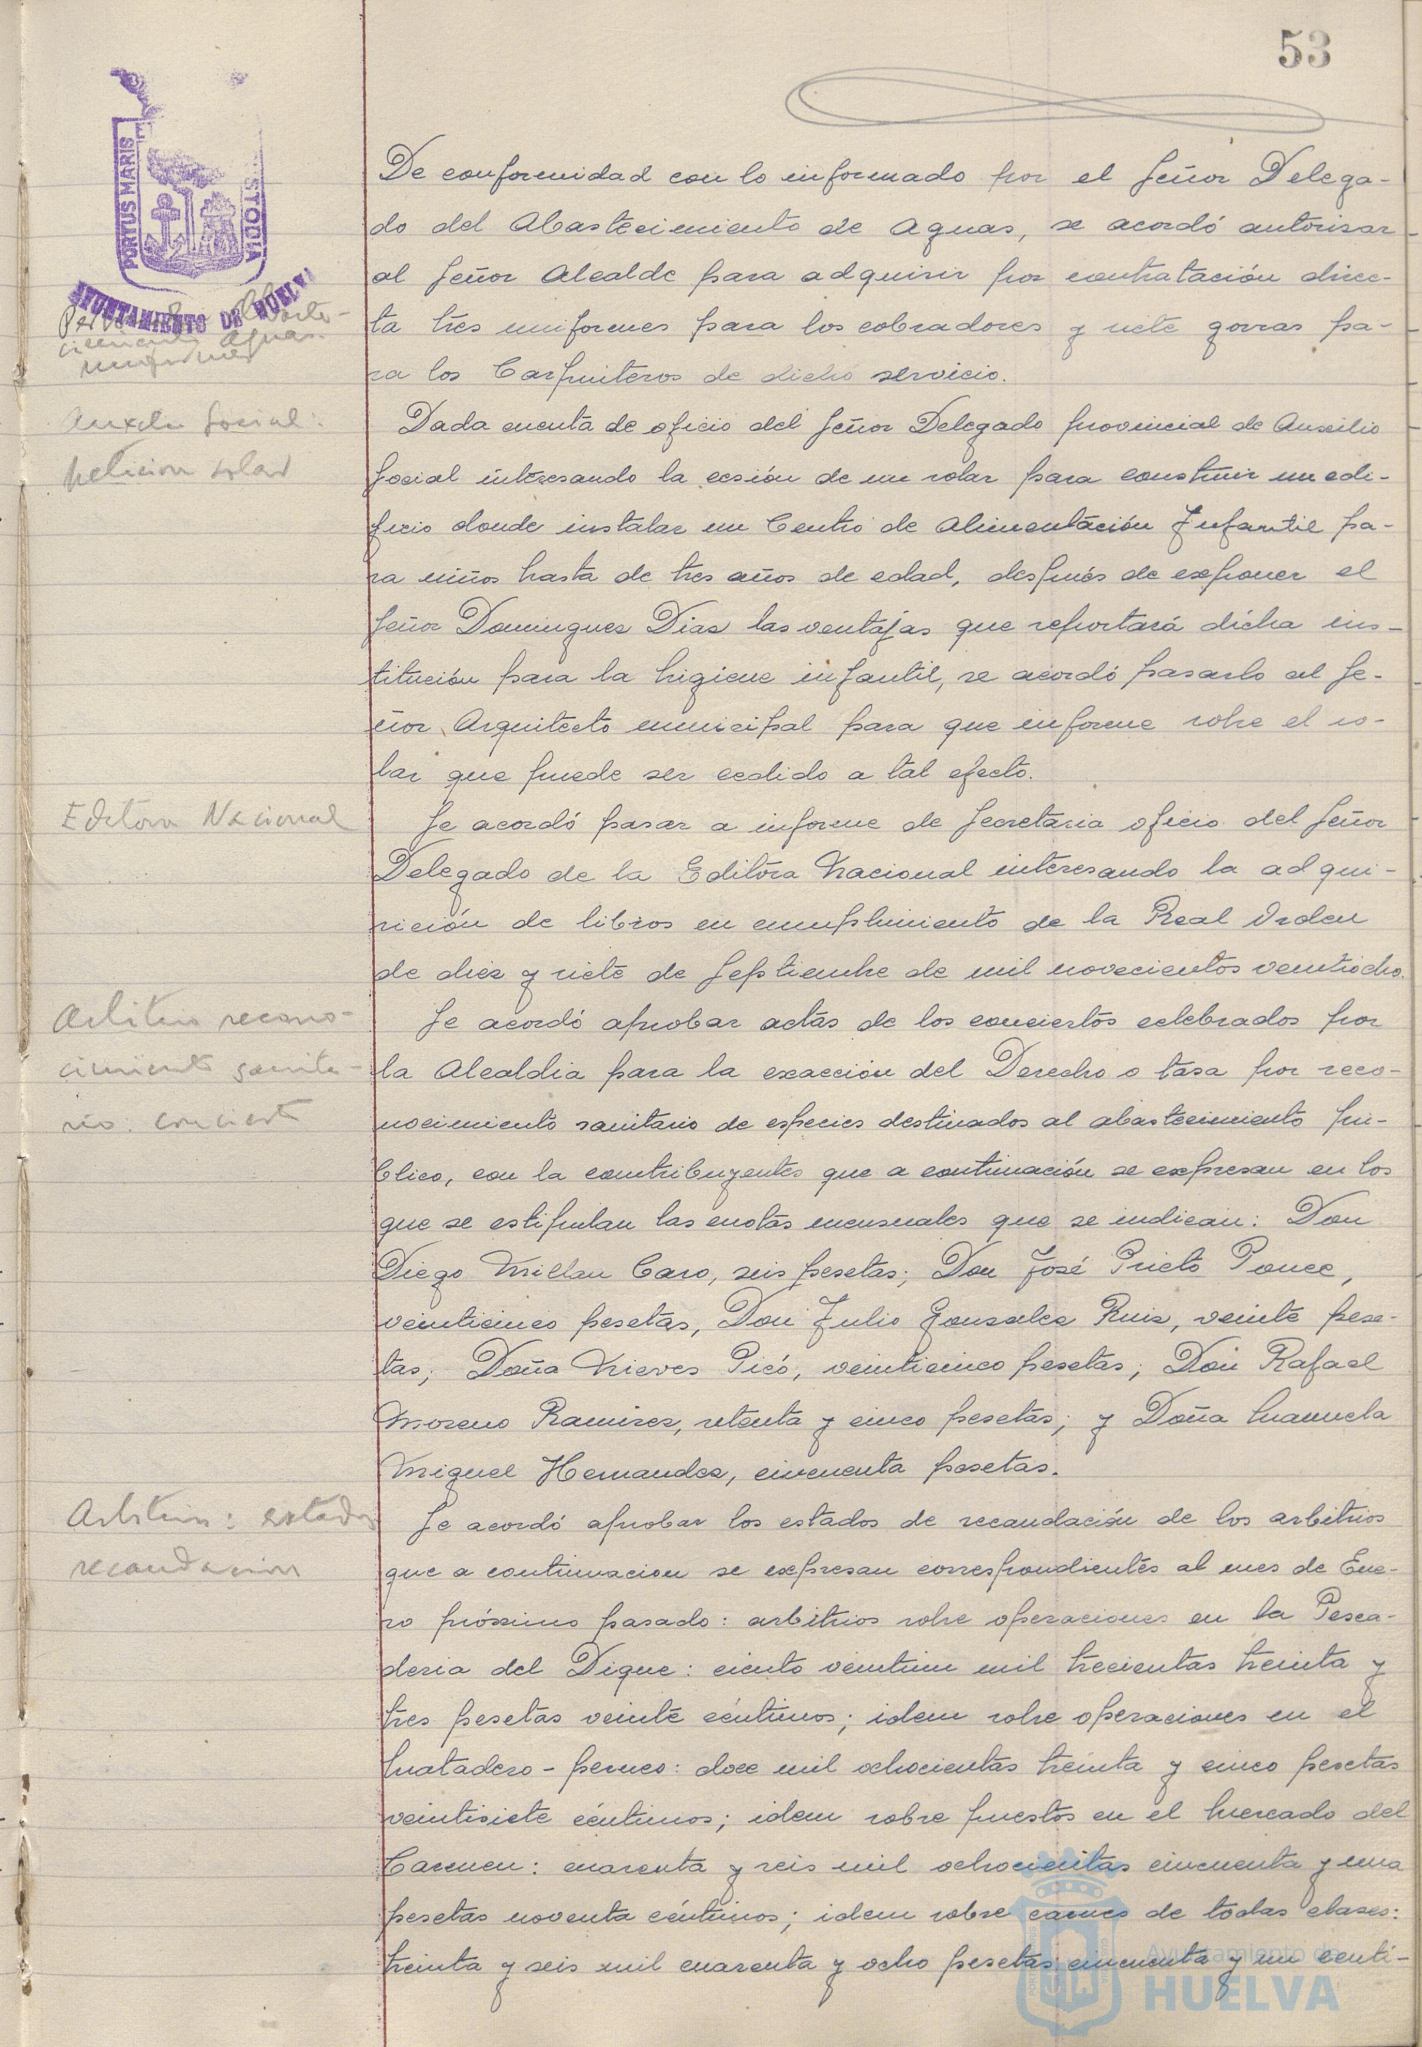 53
PORTUS MARIS ET
STODIA
AYUNTAMIENTO DE HUELVA
De conformidad con lo informado por el Señor Delega-
do del Abastecimiento de Aguas, se acordó autorizar
al Señor Alcalde para adquirir por contratación direc-
ta tres uniformes para los cobradores y siete gorras pa-
ra los Carpinteros de dicho servicio.
Auxilio Social:
petición solar
Dada cuenta de oficio del Señor Delegado provincial de Auxilio
Social interesando la cesión de un solar para construir un edi-
ficio donde instalar un Centro de Alimentación Infantil pa-
ra niños hasta de tres años de edad, después de exponer el
Señor Dominguez Diaz las ventajas que reportará dicha ins-
titución para la higiene infantil, se acordó pasarlo al Se-
ñor Arquitecto municipal para que informe sobre el so-
lar que puede ser cedido a tal efecto.
Editora Nacional
Se acordó pasar a informe de Secretaria oficio del Señor
Delegado de la Editora Nacional interesando la adqui-
sición de libros en cumplimiento de la Real Orden
de diez y siete de Septiembre de mil novecientos veintiocho.
Arbitrio recono-
cimiento sanita-
rio: concierto
Se acordó aprobar actas de los conciertos celebrados por
la Alcaldia para la exacción del Derecho o tasa por reco-
nocimiento sanitario de especies destinados al abastecimiento pú-
blico, con la contribuyentes que a continuación se expresan en los
que se estipulan las cuotas mensuales que se indican: Don
Diego Millan Caro, seis pesetas; Don José Prieto Ponce,
veinticinco pesetas, Don Julio Gonzalez Ruiz, veinte pese-
tas; Doña Nieves Picó, veinticinco pesetas; Don Rafael
Moreno Ramirez, setenta y cinco pesetas; y Doña Manuela
Miguel Hernandez, cincuenta pesetas.
Arbitrios: estados
recaudacion
Se acordó aprobar los estados de recaudación de los arbitrios
que a continuacion se expresan correspondientes al mes de Ene-
ro próximo pasado: arbitrios sobre operaciones en la Pesca-
deria del Dique: ciento veintiun mil trecientas treinta y
tres pesetas veinte céntimos; idem sobre operaciones en el
Matadero - perneo: doce mil ochocientas treinta y cinco pesetas
veintisiete céntimos; idem sobre puestos en el Mercado del
Carmen: cuarenta y seis mil ochocientas cincuenta y una
pesetas noventa céntimos; idem sobre carnes de todas clases:
treinta y seis mil cuarenta y ocho pesetas cincuenta y un centi-
Ayuntamiento de
HUELVA